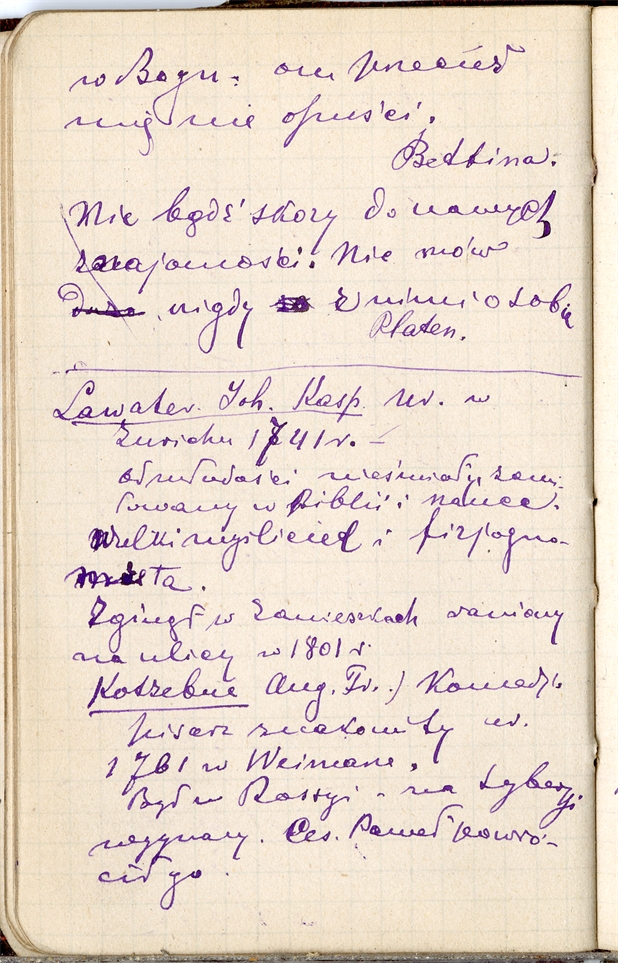 w Bogu: on przecież
mię nie opuści.
Bettina.
Nie bądź skory do nowych
znajomości. Nie mów
dużo nigdy z nimi o sobie
Platen.
Lawater. Joh. Kasp. ur. w
Zurichu 1741 r. –
od młodości nieśmiały, zami-
łowany w Biblii i nauce.
Wielki myśliciel i fizjogno-
mista.
Zginął w zamieszkach raniony
na ulicy w 1801 r.
Kotzebue Aug. Fr.) Komedjo
pisarz znakomity ur.
1761 w Weimarze.
Był w Rossyi – na Syberyi
wygnany. Ces. Paweł powró-
cił go.